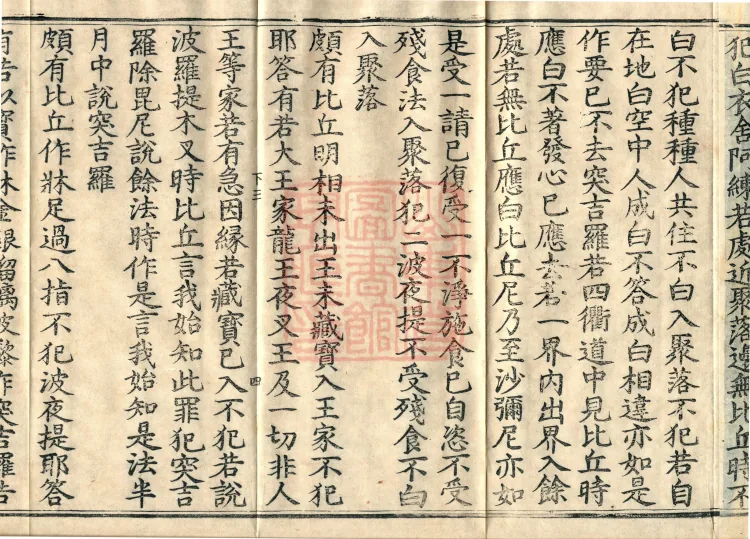 犯白衣舍阿練若處近聚落邊無比丘時不
白不犯種種人共住不白入聚落不犯若自
在地白空中人成白不答成白相違亦如是
作要已不去突吉羅若四衢道中見比丘時
應白不著發心已應去若一界內出界入餘
處若無比丘應白比丘尼乃至沙彌尼亦如
是受一請已復受一不淨施食已自恣不受
殘食法入聚落犯二波夜提不受殘食不白
入聚落
頗有比丘明相未出王未藏寶入王家不犯
耶答有若大王家龍王夜叉王及一切非人
王等家若有急因緣若藏寶已入不犯若說
波羅提木叉時比丘言我始知此罪犯突吉
羅除毘尼說餘法時作是言我始知是法半
月中說突吉羅
頗有比丘作牀足過八指不犯波夜提耶答
有若以寶作牀金銀瑠璃玻瓈作突吉羅若
下三
四